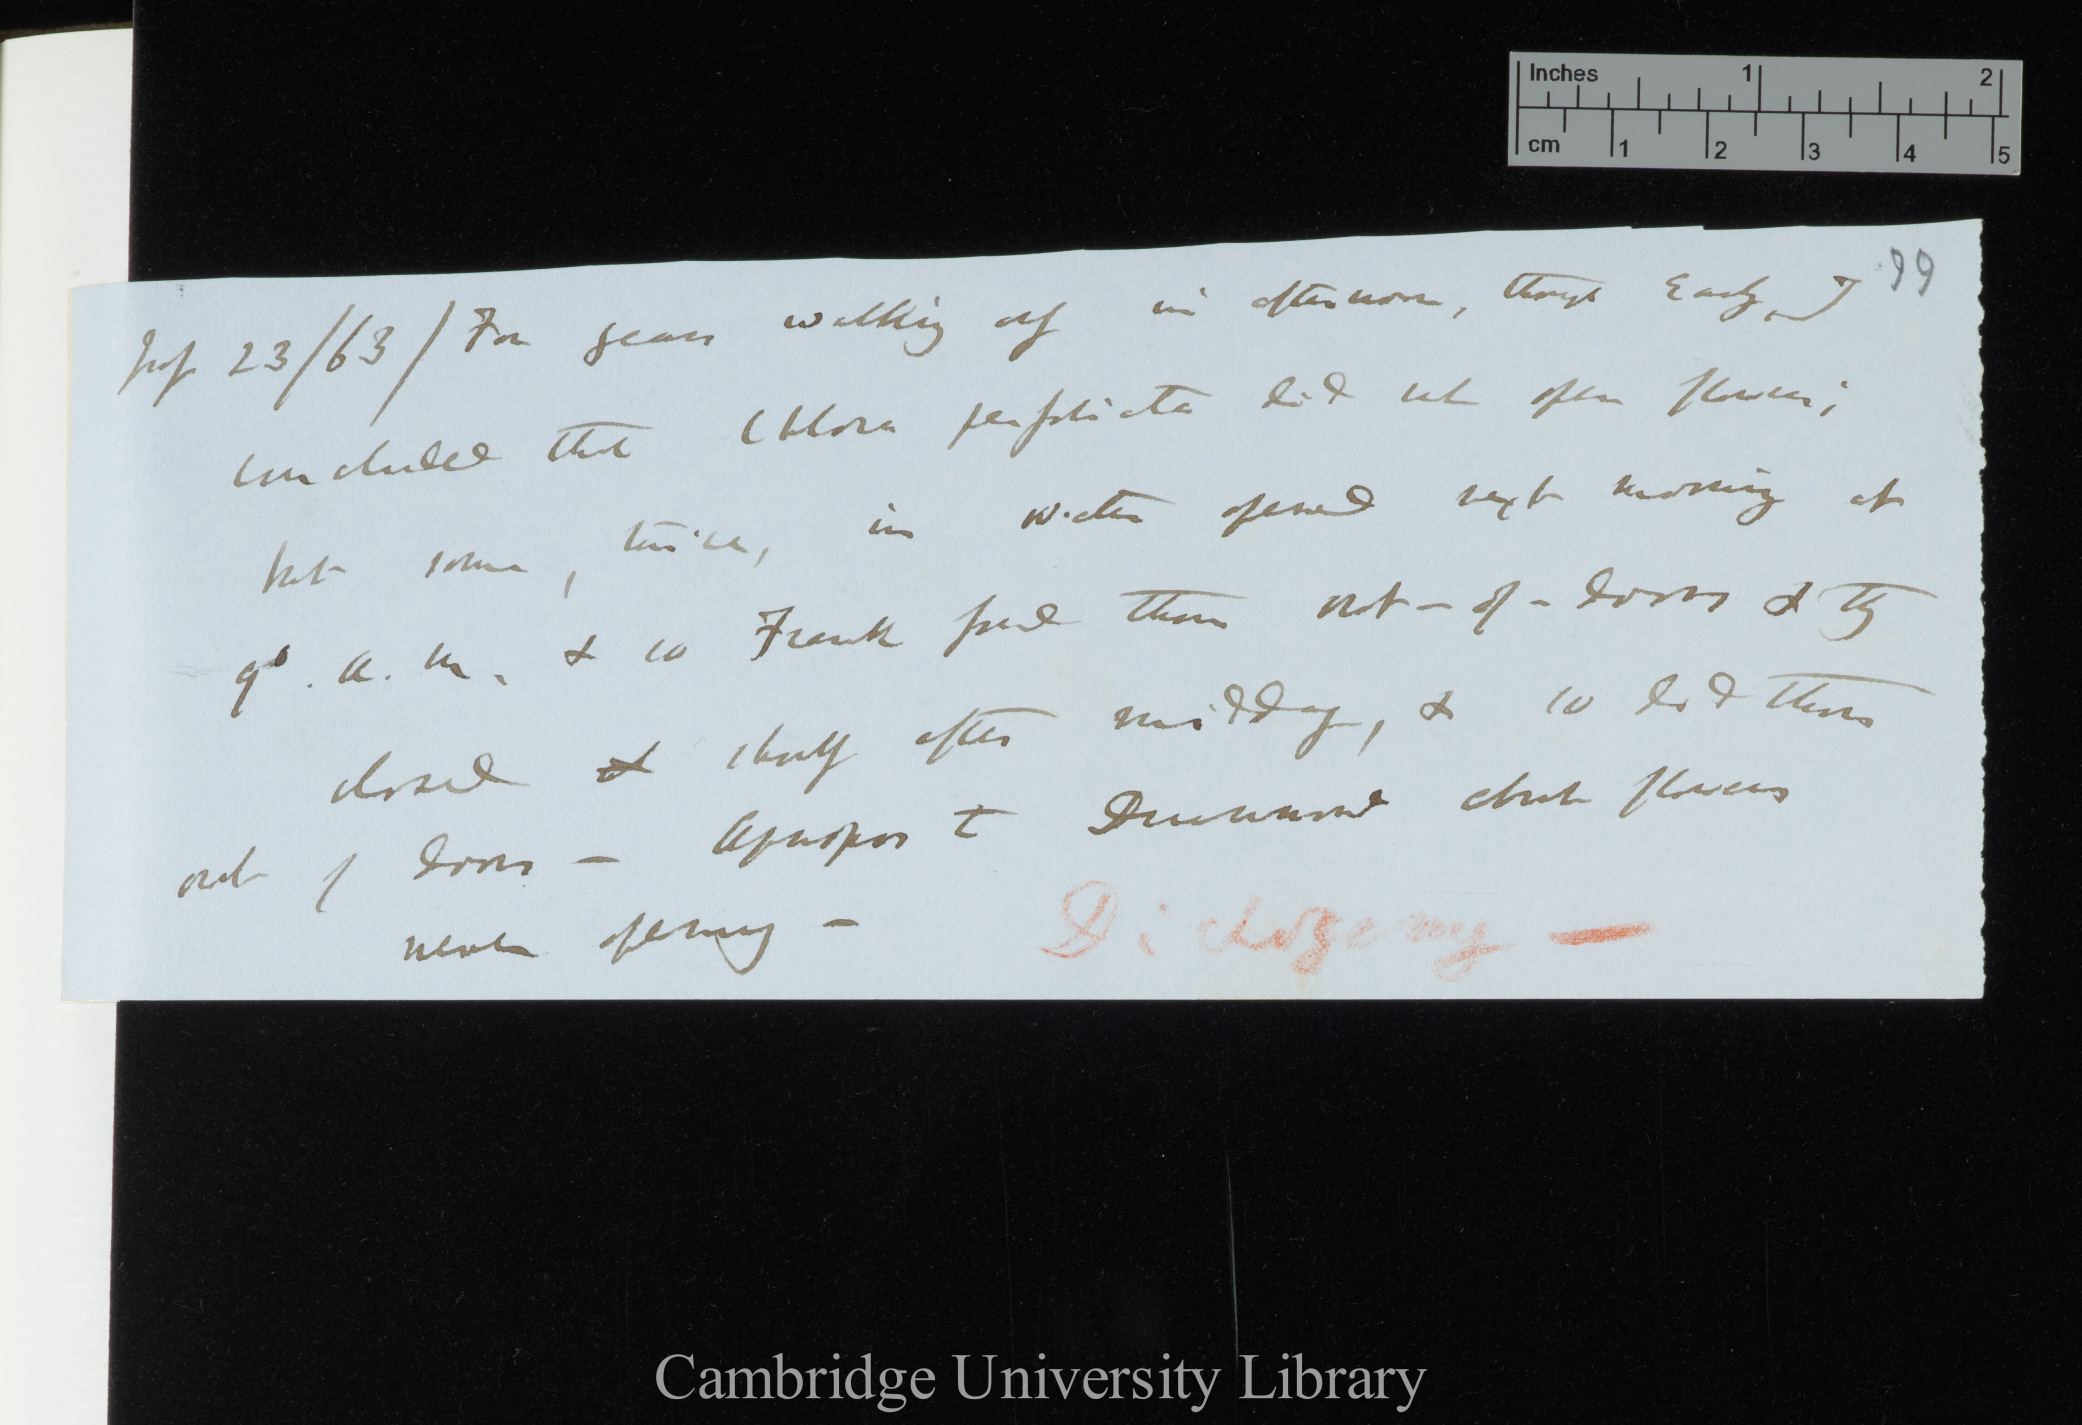 Inches 1 2
cm 1 2 3 4 5
99
23/63/ For years walking only in afternoon, though early, I
concluded that Chlora perfoliata did not open flowers;
but some, twice, in water opened next morning at
9º. a. m. & so Frank found them out-of-doors & they
closed & shortly after midday, & so did those
out of doors — Apropos to Drummond about flowers
never opening —
Dichogamy —
Cambridge University Library